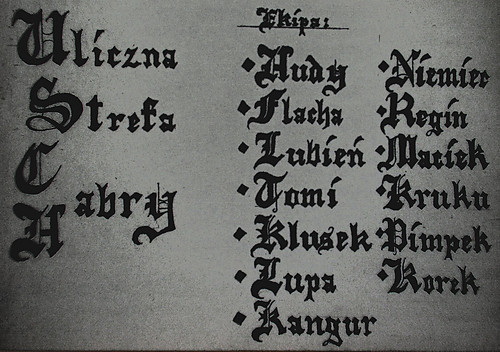 Uliczna
Strefa
CHabry
Ekipa:
•Hudy
•Flacha
•Lubień
•Tomi
•Klusek
•Lupa
•Kangur
•Niemiec
•Regin
•Maciek
•Kruku
•Pimpek
•Korek